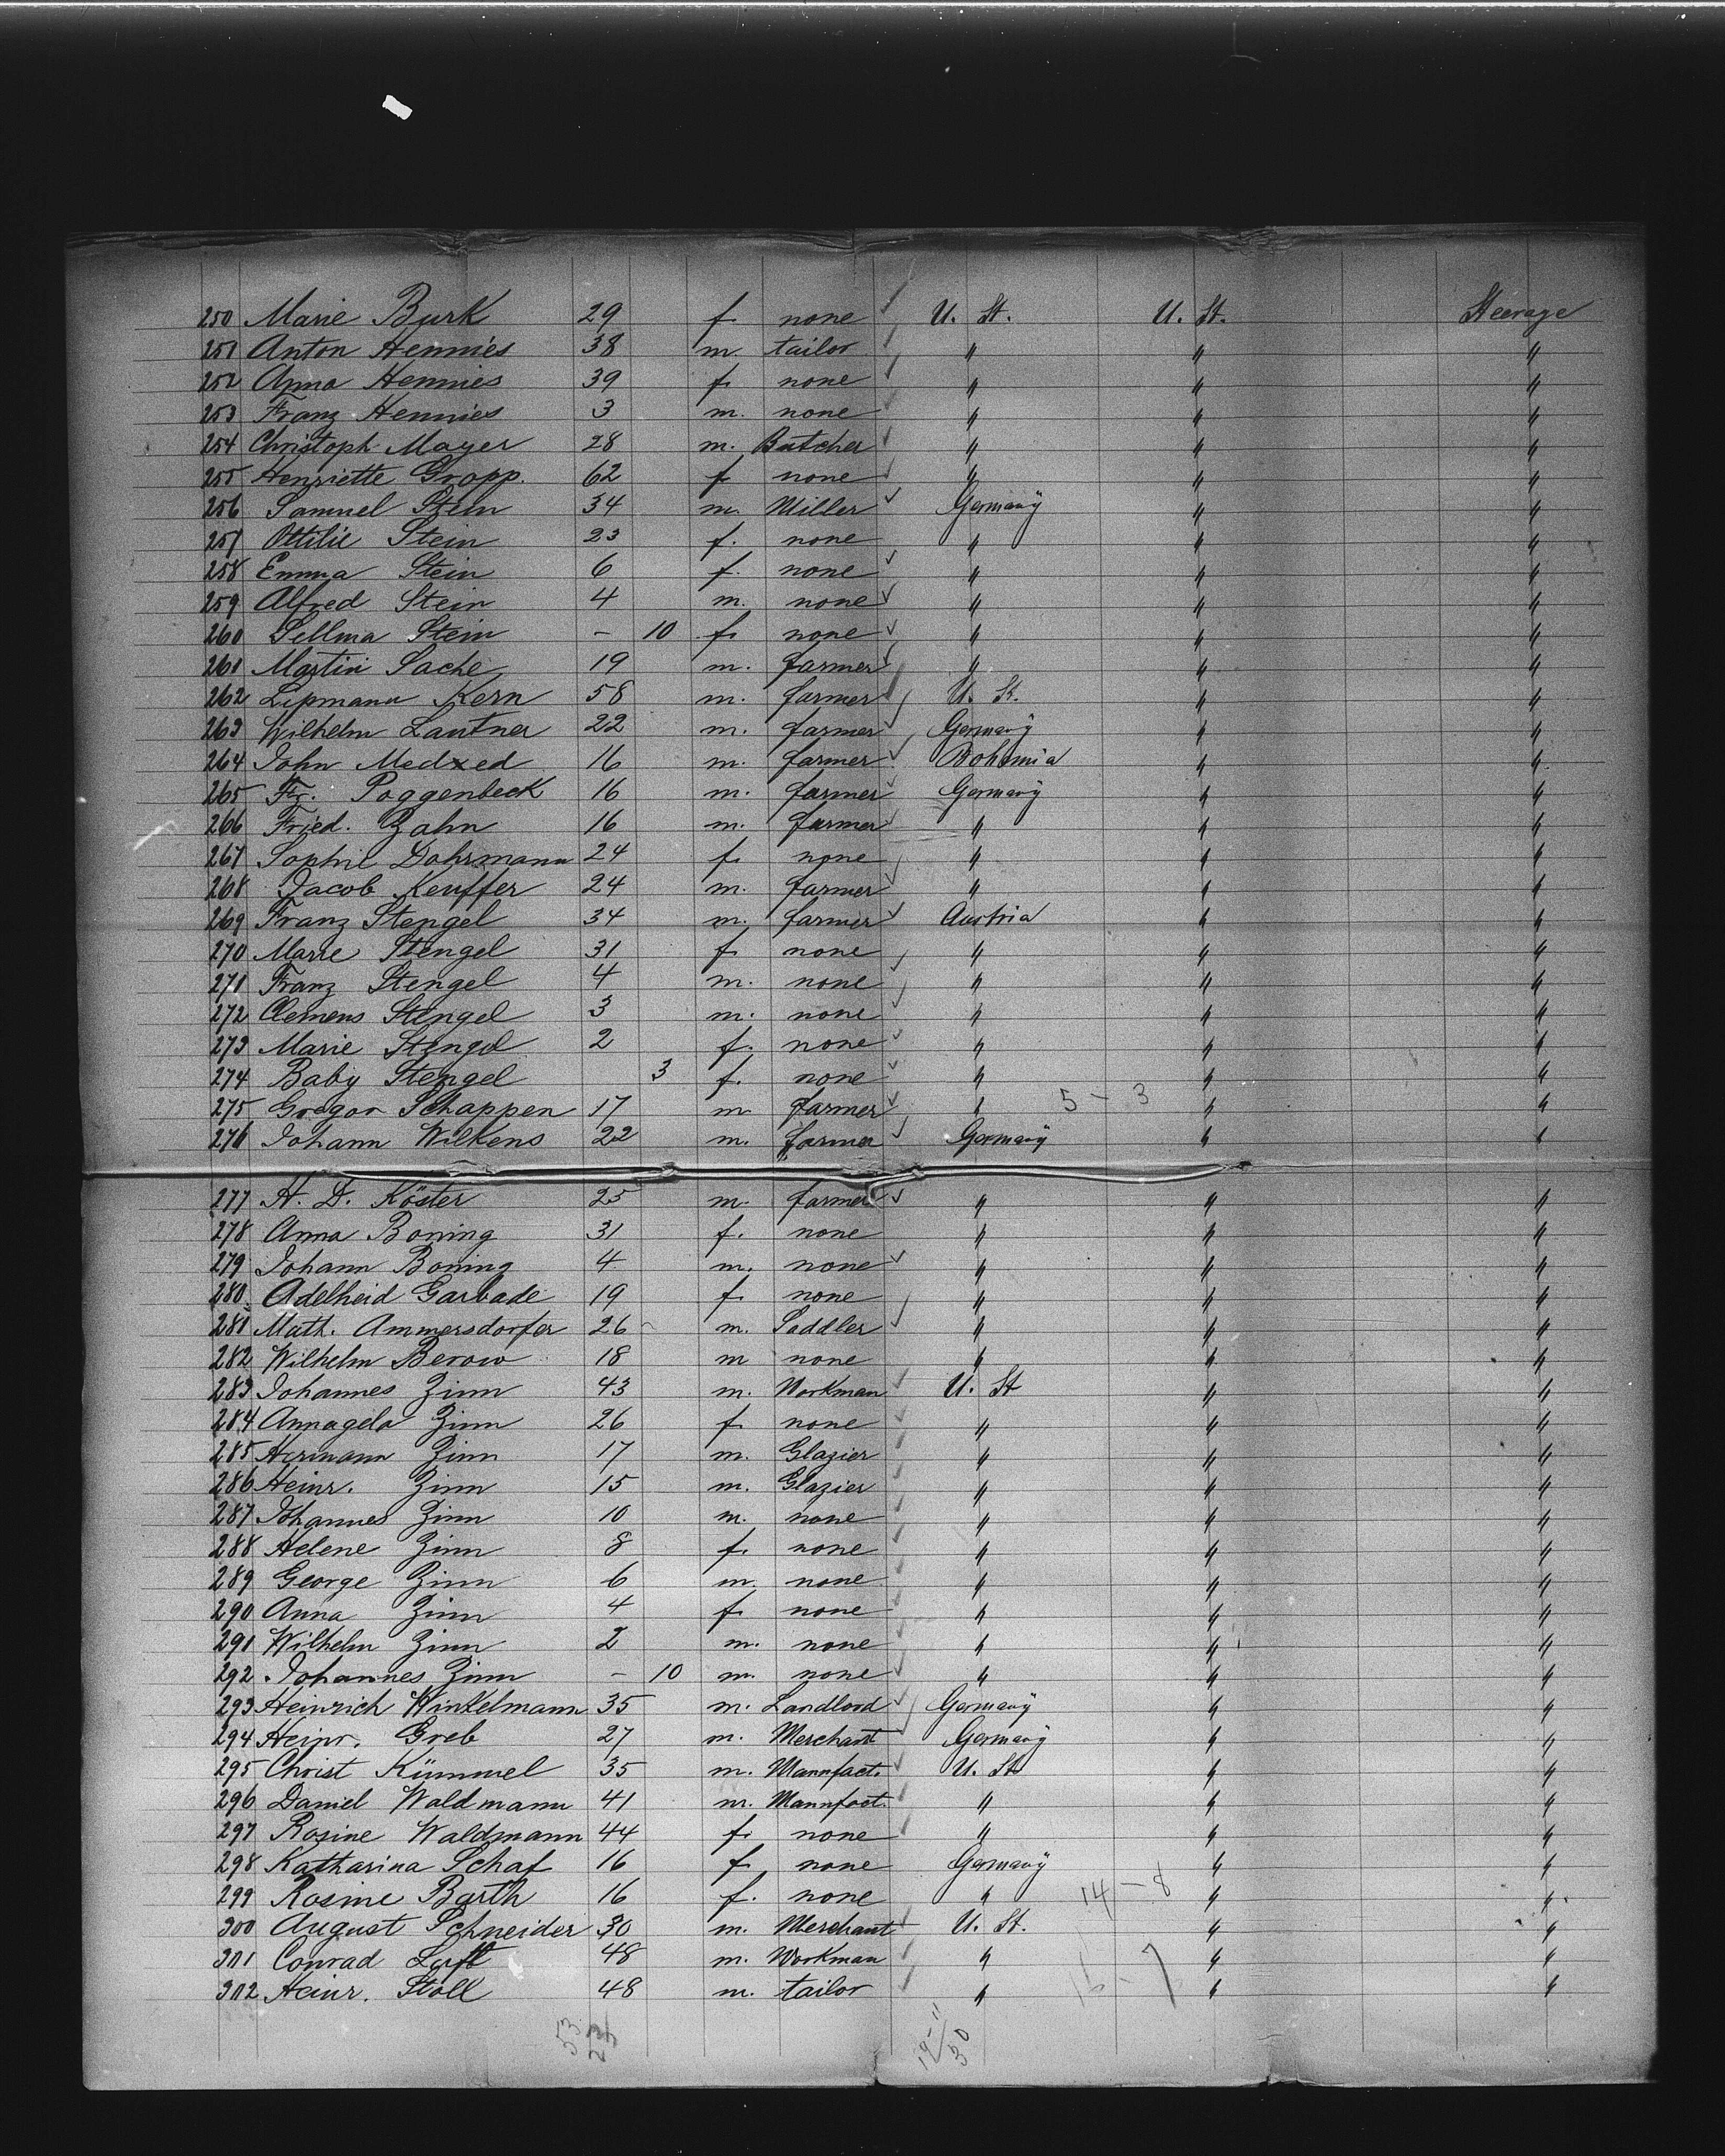 250 Marie Burk 29 f. none U. St. U. St. Steerage
251 Anton Hennies 38 m. tailor " " "
252 Anna Hennies 39 f. none " " "
253 Franz Hennies 3 m. none " " "
254 Christoph Mayer 28 m. Butcher " " "
255 Henriette Gropp. 62 f none " " "
256 Samuel Stein 34 m. Miller Germany " "
257 Ottilie Stein 23 f. none " " "
258 Emma Stein 6 f. none " " "
259 Alfred Stein 4 m. none " " "
260 Sellma Stein - 10 f. none " " "
261 Martin Sache 19 m. farmer " " "
262 Lipmann Kern 58 m. farmer U. St. " "
263 Wilhelm Lautner 22 m. farmer Germany " "
264 John Medxed 16 m. farmer Bohemia " "
265 Fr. Poggenbeck 16 m. farmer Germany " "
266 Fried. Zahn 16 m. farmer " " "
267 Sophie Dohrmann 24 f. none " " "
268 Jacob Keuffer 24 m. farmer " " "
269 Franz Stengel 34 m. farmer Austria " "
270 Marie Stengel 31 f. none " " "
271 Franz Stengel 4 m. none " " "
272 Clemens Stengel 3 m. none " " "
273 Marie Stengel 2 f. none " " "
274 Baby Stengel 3 f. none " " "
275 Gregor Schappen 17 m farmer " 5 - 3 " "
276 Johann Wilkens 22 m. farmer Germany " "
277 H. D. Köster 25 m. farmer " " "
278 Anna Boning 31 f. none " " "
279 Johann Boning 4 m. none " " "
280 Adelheid Garbade 19 f. none " " "
281 Math. Ammersdorfer 26 m. Saddler " " "
282 Wilhelm Berow 18 m none " " "
283 Johannes Zinn 43 m. Workman U. St " "
284 Annagela Zinn 26 f. none " " "
285 Hermann Zinn 17 m. Glazier " " "
286 Heinr. Zinn 15 m. Glazier " " "
287 Johannes Zinn 10 m. none " " "
288 Helene Zinn 8 f. none " " "
289 George Zinn 6 m. none " " "
290 Anna Zinn 4 f. none " " "
291 Wilhelm Zinn 2 m. none " " "
292 Johannes Zinn - 10 m. none " " "
293 Heinrich Winkelmann 35 m. Landlord Germany " "
294 Heinr. Greb 27 m. Merchant Germany " "
295 Christ Kümmel 35 m. Mannfact. U. St. " "
296 Daniel Waldmann 41 m. Mannfact. " " "
297 Rosine Waldmann 44 f. none " " "
298 Katharina Schaf 16 f. none Germany " "
299 Rosine Barth 16 f. none " 14 - 8 " "
300 August Schneider 30 m. Merchant U. St. " "
301 Conrad Luft 48 m. Workman " " "
302 Heinr. Stoll 48 m. tailor " " "
53
23
19-11
30